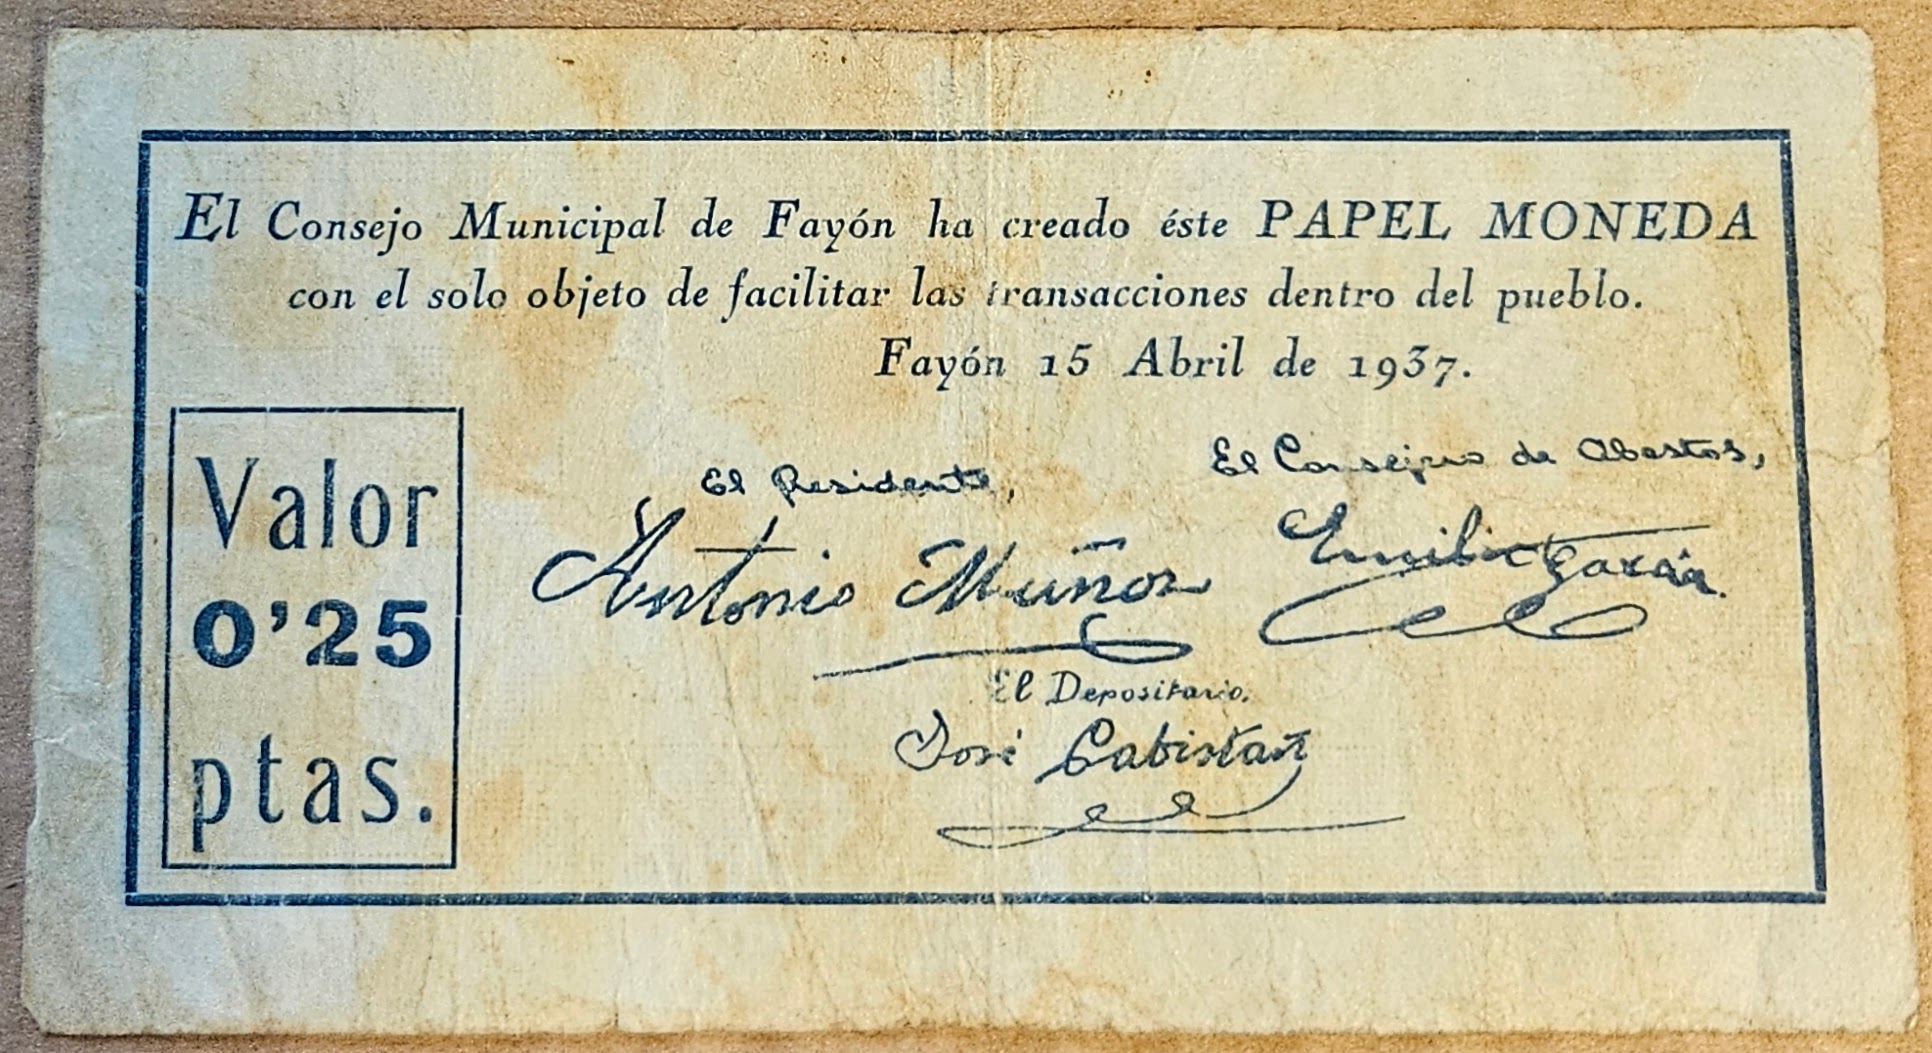 El Consejo Municipal de Fayón ha creado éste PAPEL MONEDA
con el solo objeto de facilitar las transacciones dentro del pueblo.
Fayón 15 Abril de 1937.
Valor
0'25
ptas.
El Presidente,
Antonio Muñoz
El Consejero de Abastos,
Emilio García
El Depositario.
José Cabistañ